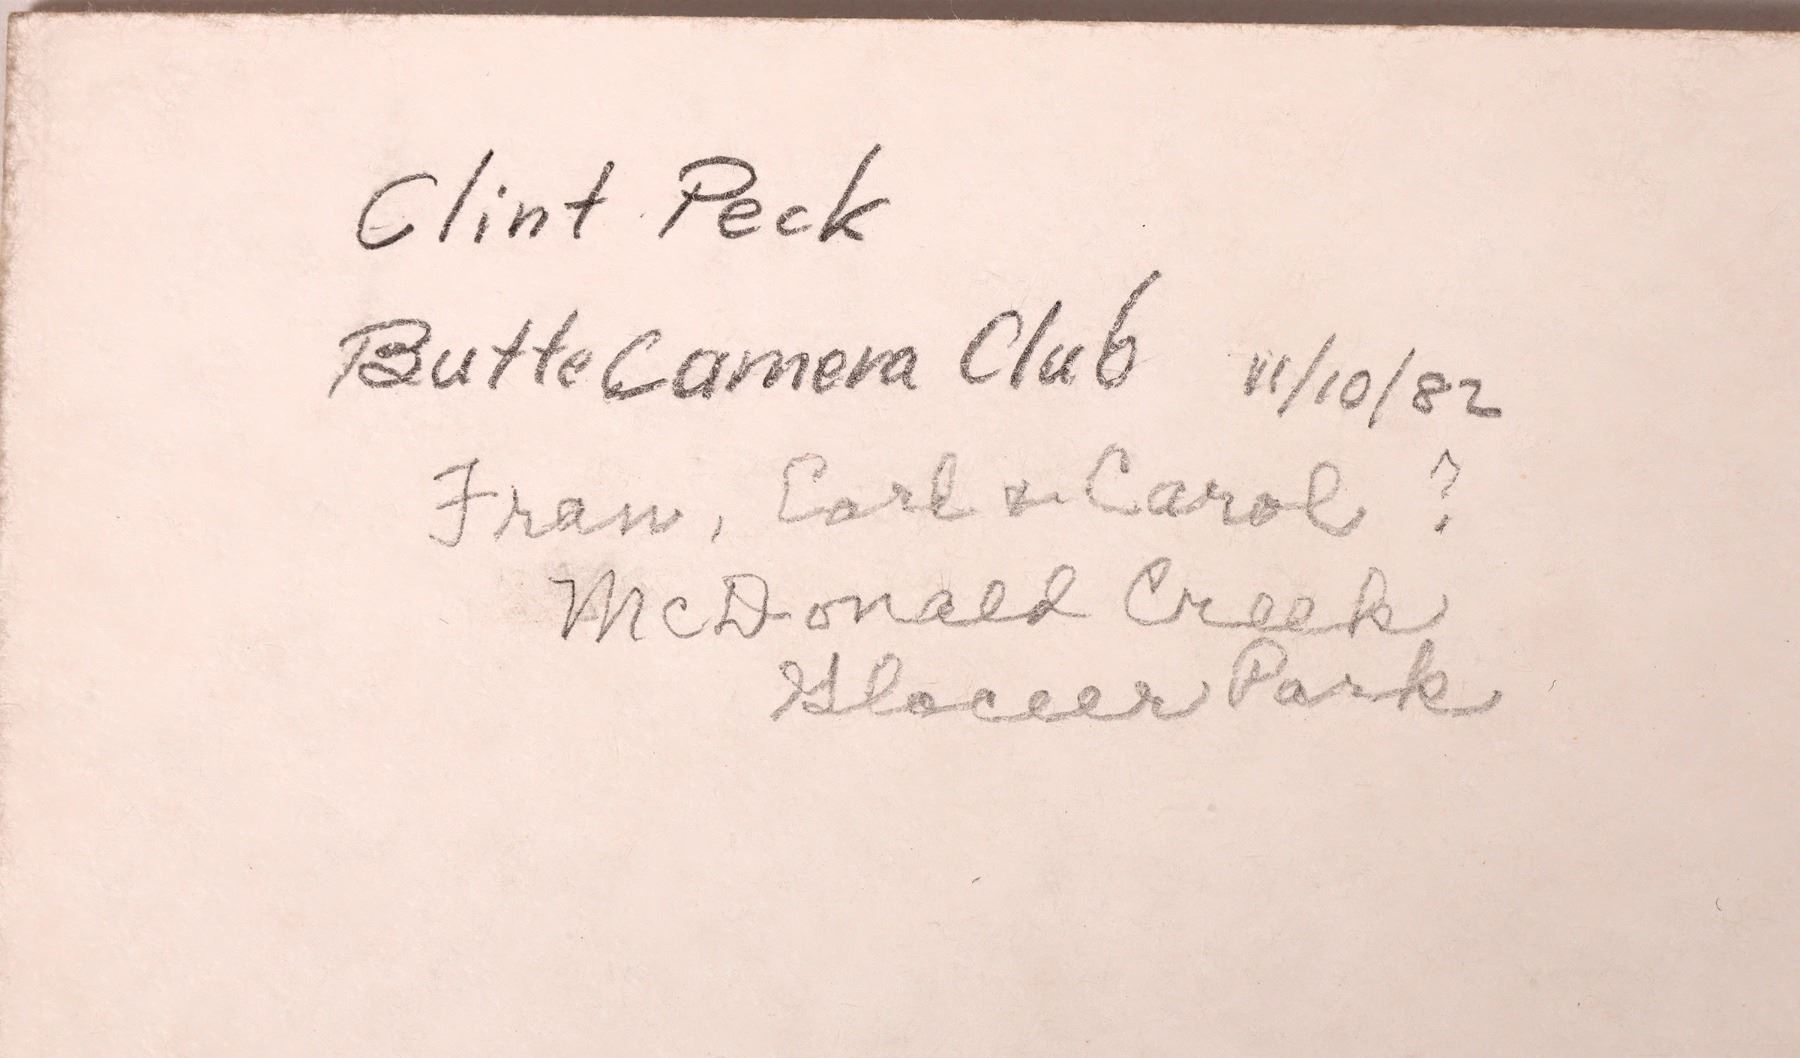 Clint Peck
Butte Camera Club 11/10/82
Fran, Earl & Carol ?
McDonald Creek
Glacier Park